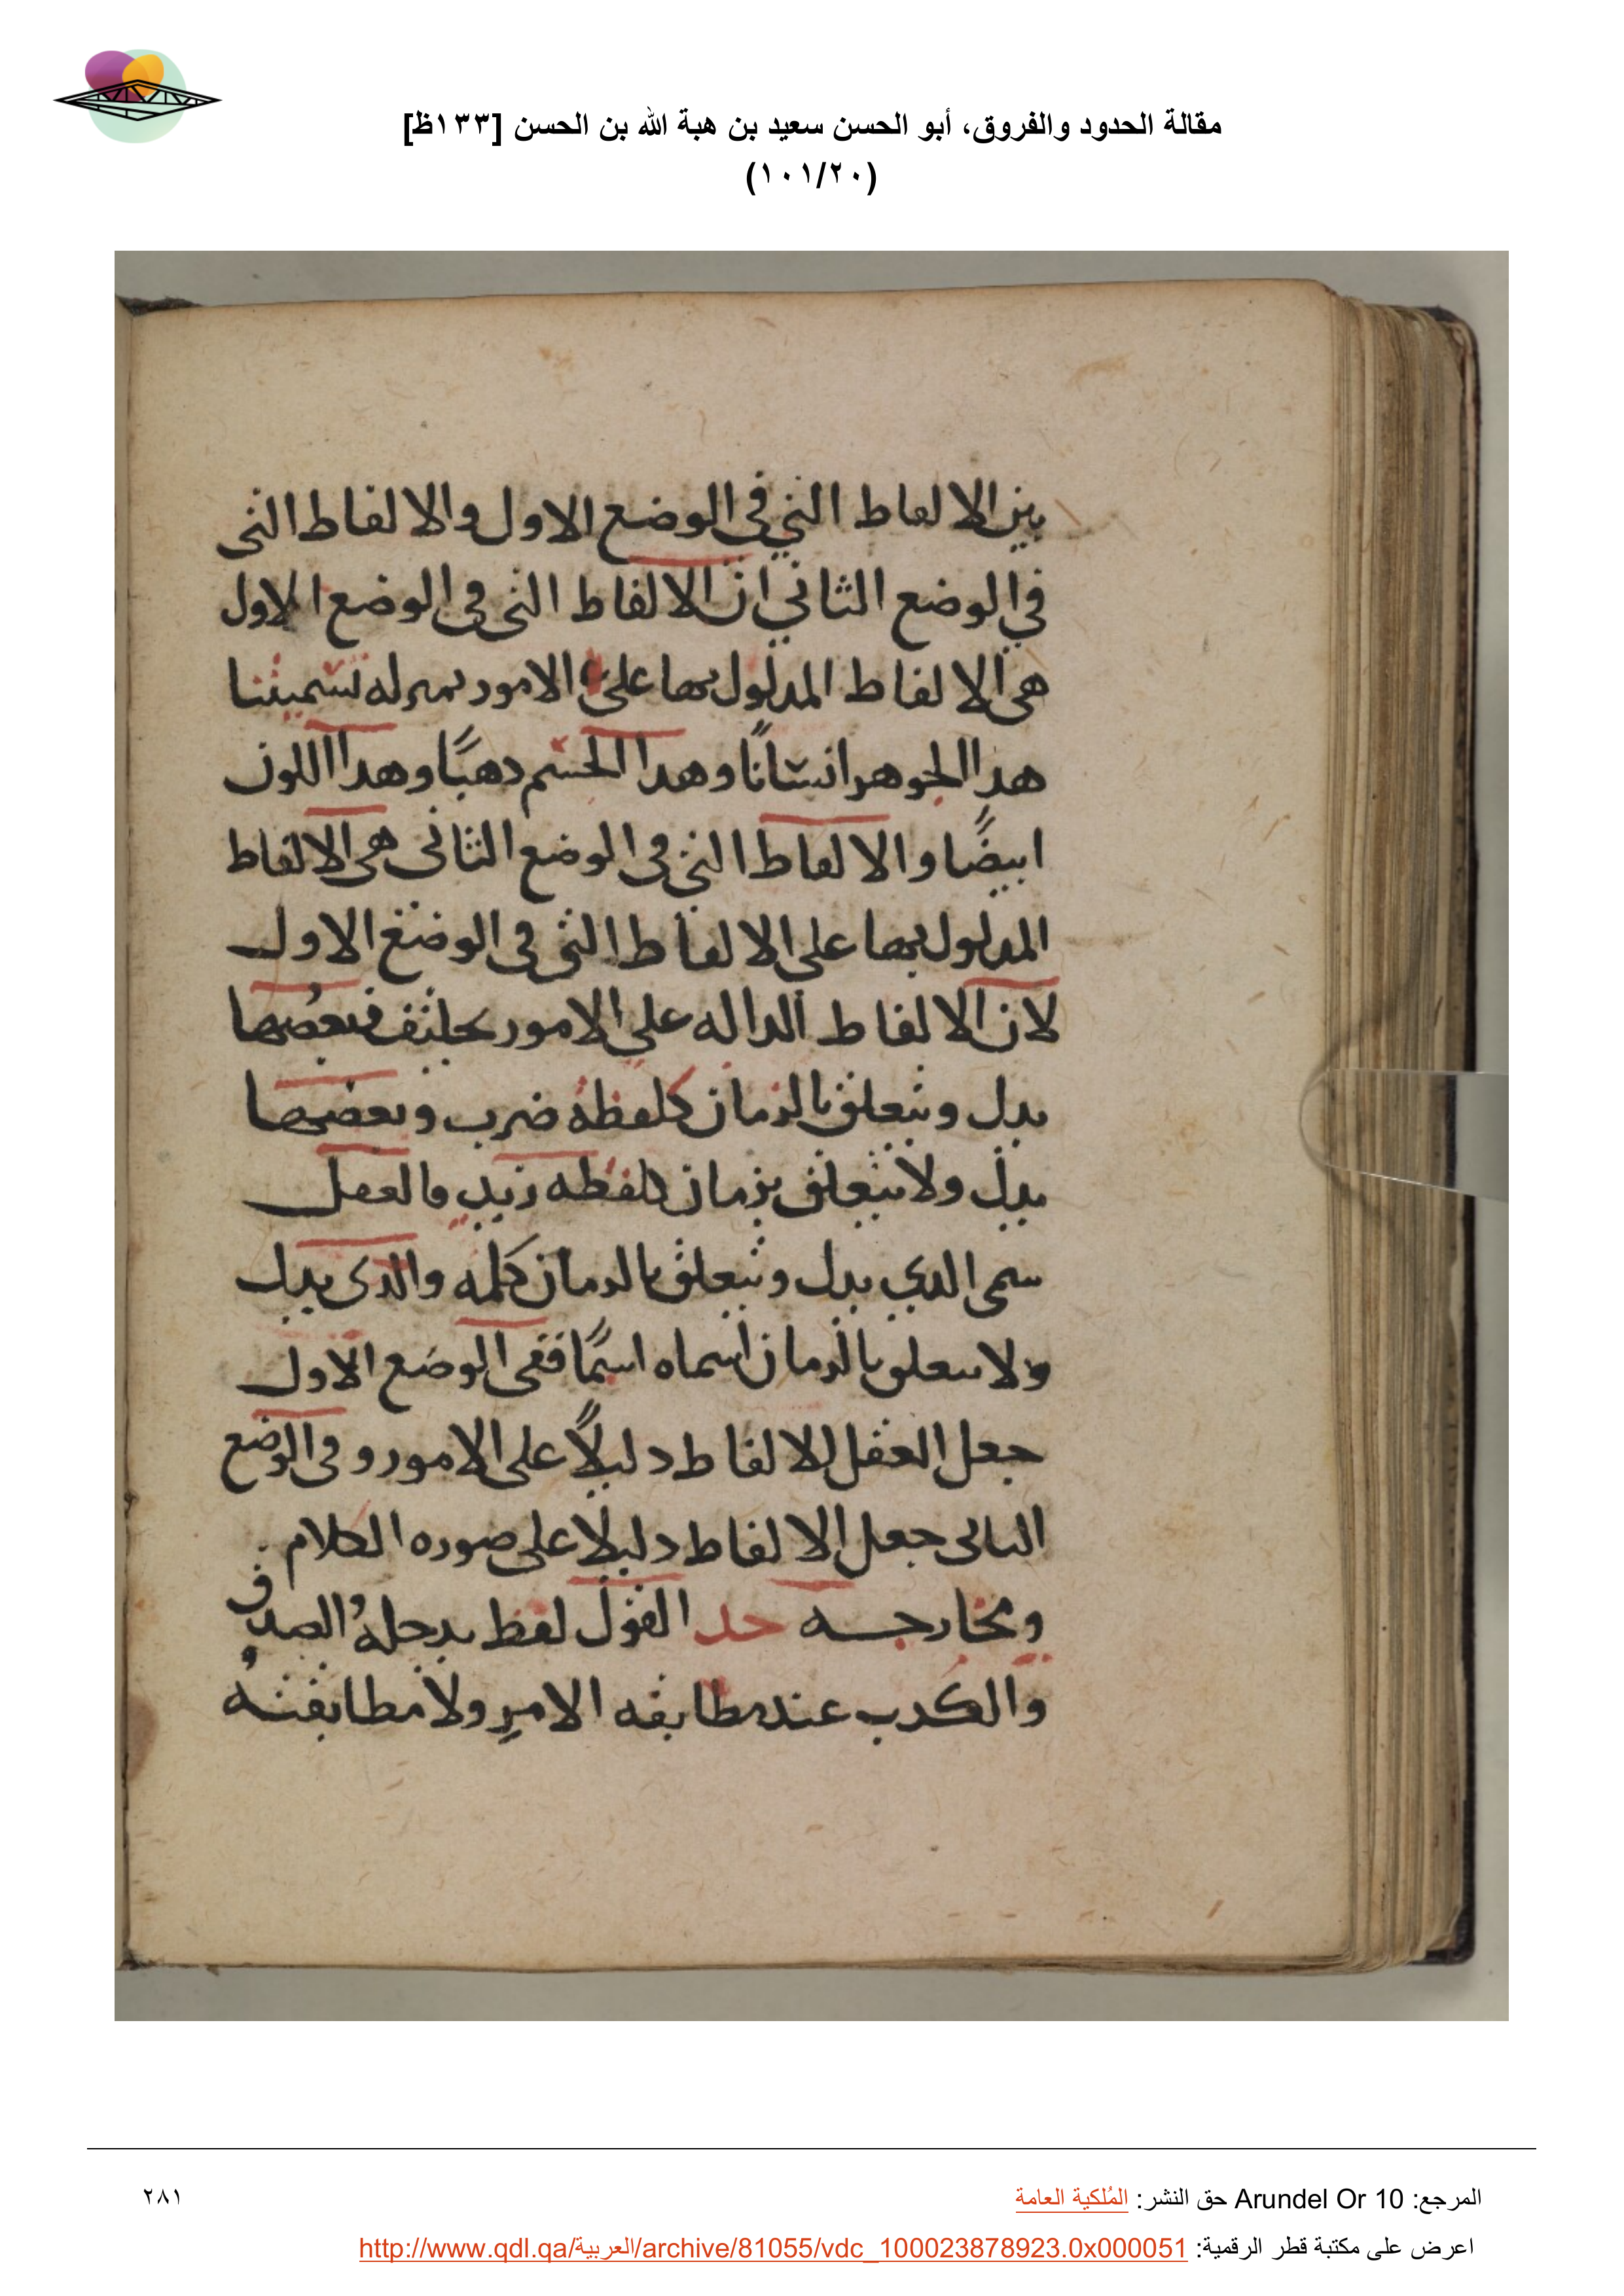 مقالة الحدود والفروق، أبو الحسن سعيد بن هبة الله بن الحسن [١٣٣ظ]
(١٠١/٢٠)
بين الالفاط التي في الوضع الاول والالفاط التى
في الوضع الثاني ان الالفاط التى فى الوضع الاول
هى الالفاط المدلول بها على الامور بمنزله تسميتنا
هدا الجوهر انسانًا وهدا الجسم دهبًا وهدا اللون
ابيضًا والالفاط التى فى الوضع الثانى هى الالفاط
المدلول بها على الالفاط التى فى الوضع الاول
لان الالفاط الداله على الامور تختلف فبعضها
يدل ويتعلق بالزمان كلفظه ضرب وبعضها
يدل ولا يتعلق بزمان كلفظه زيد فالعقل
سمى الدي يدل ويتعلق بالزمان كلمه والدى يدل
ولا يتعلق بالزمان اسماه اسمًا ففى الوضع الاول
جعل العقل الالفاط دليلًا على الامور وفى الوضع
الثانى جعل الالفاط دليلًا على صوره الكلام
ومخارجه حد القول لفظ يدخله الصدق
والكدب عند مطابقه الامر ولا مطابقته
المرجع: Arundel Or 10 حق النشر: المُلكية العامة
٢٨١
اعرض على مكتبة قطر الرقمية: http://www.qdl.qa/العربية/archive/81055/vdc_100023878923.0x000051